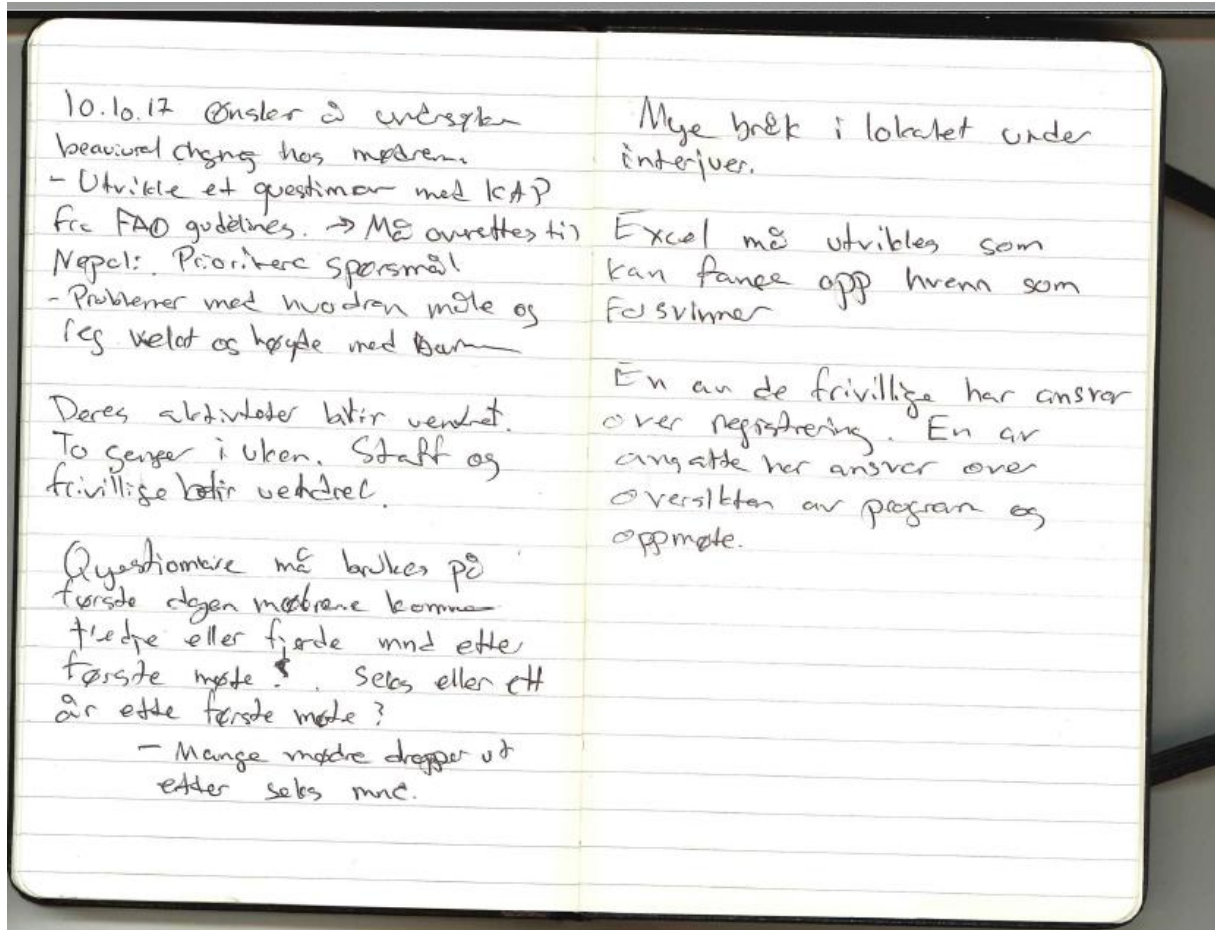 10.10.17 Ønsler å undersøken
beaviural chgneg hos mødrene.
- Utvikle et questimar med KAP
fra FAO gudelines. → Må oversettes til
Nepal: Prioritere spørsmål
- Problemer med hvodran måle og
reg vekt og høyde med barn
Deres aktiviteter blir vendret.
To ganger i uken. Staff og
frivillige blir vendret.
Questionaire må brukes på
første dagen mødrene komme
tredje eller fjerde mnd etter
første møte? . Seks eller ett
år ette første møte?
- Mange mødre dropper ut
etter seks mnd.
Mye bråk i lokalet under
interjuer.
Excel må utvikles som
kan fange opp hvenn som
forsvinner
En av de frivillige har ansvar
over registrering. En av
angatte har ansvar over
oversikten av program og
oppmøte.